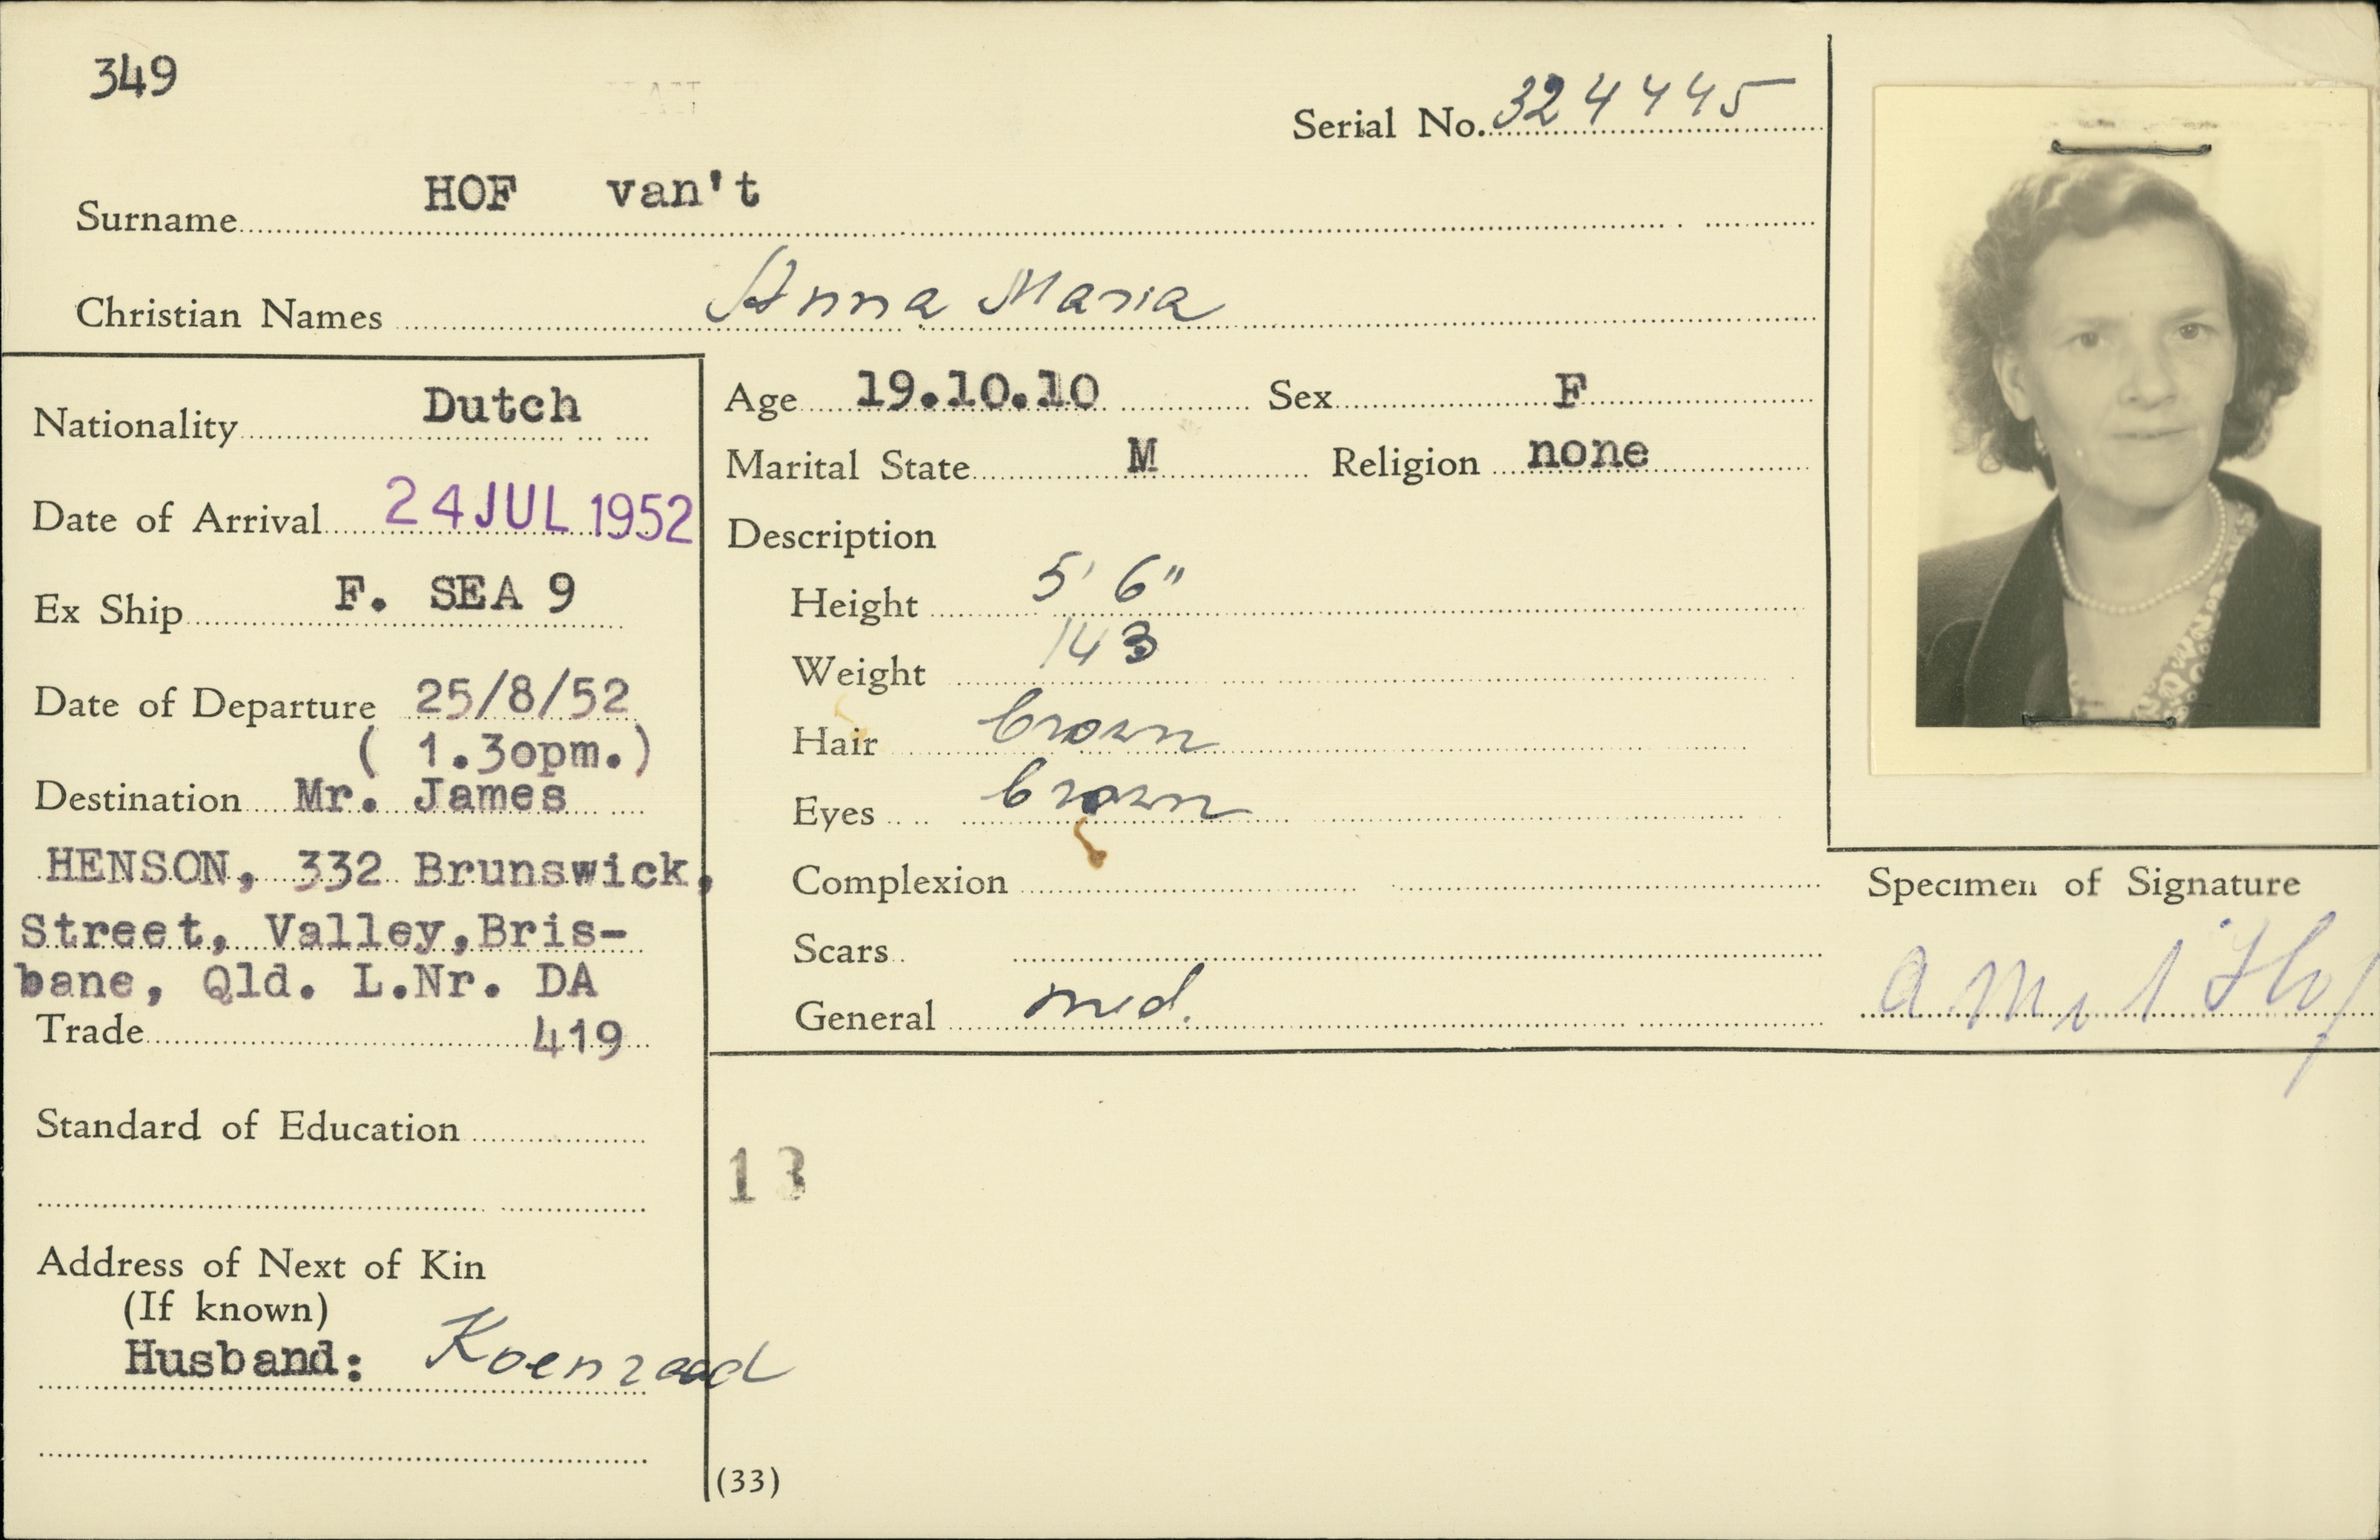 349
Serial No. 324445
Surname HOF van't
Christian Names Anna Maria
Nationality Dutch
Date of Arrival 24 JUL 1952
Ex Ship F. SEA 9
Date of Departure 25/8/52
( 1.3opm.)
Destination Mr. James
HENSON, 332 Brunswick,
Street, Valley,Bris-
bane, Qld. L.Nr. DA
Trade 419
Standard of Education
Address of Next of Kin
(If known)
Husband: Koenraad
Age 19.10.10 Sex F
Marital State M Religion none
Description
Height 5' 6"
Weight 143
Hair brown
Eyes brown
Complexion
Scars
General med.
13
(33)
Specimen of Signature